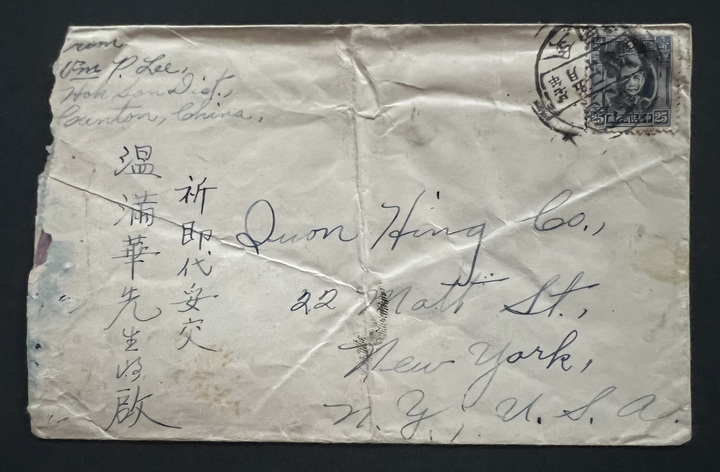 From
Wm P. Lee,
Hok San Dist.,
Canton, China,
25 25
Quon Hing Co.,
22 Mott St.,
New York,
N. Y., U. S. A.
祈即代妥交
溫滿華先生收啟